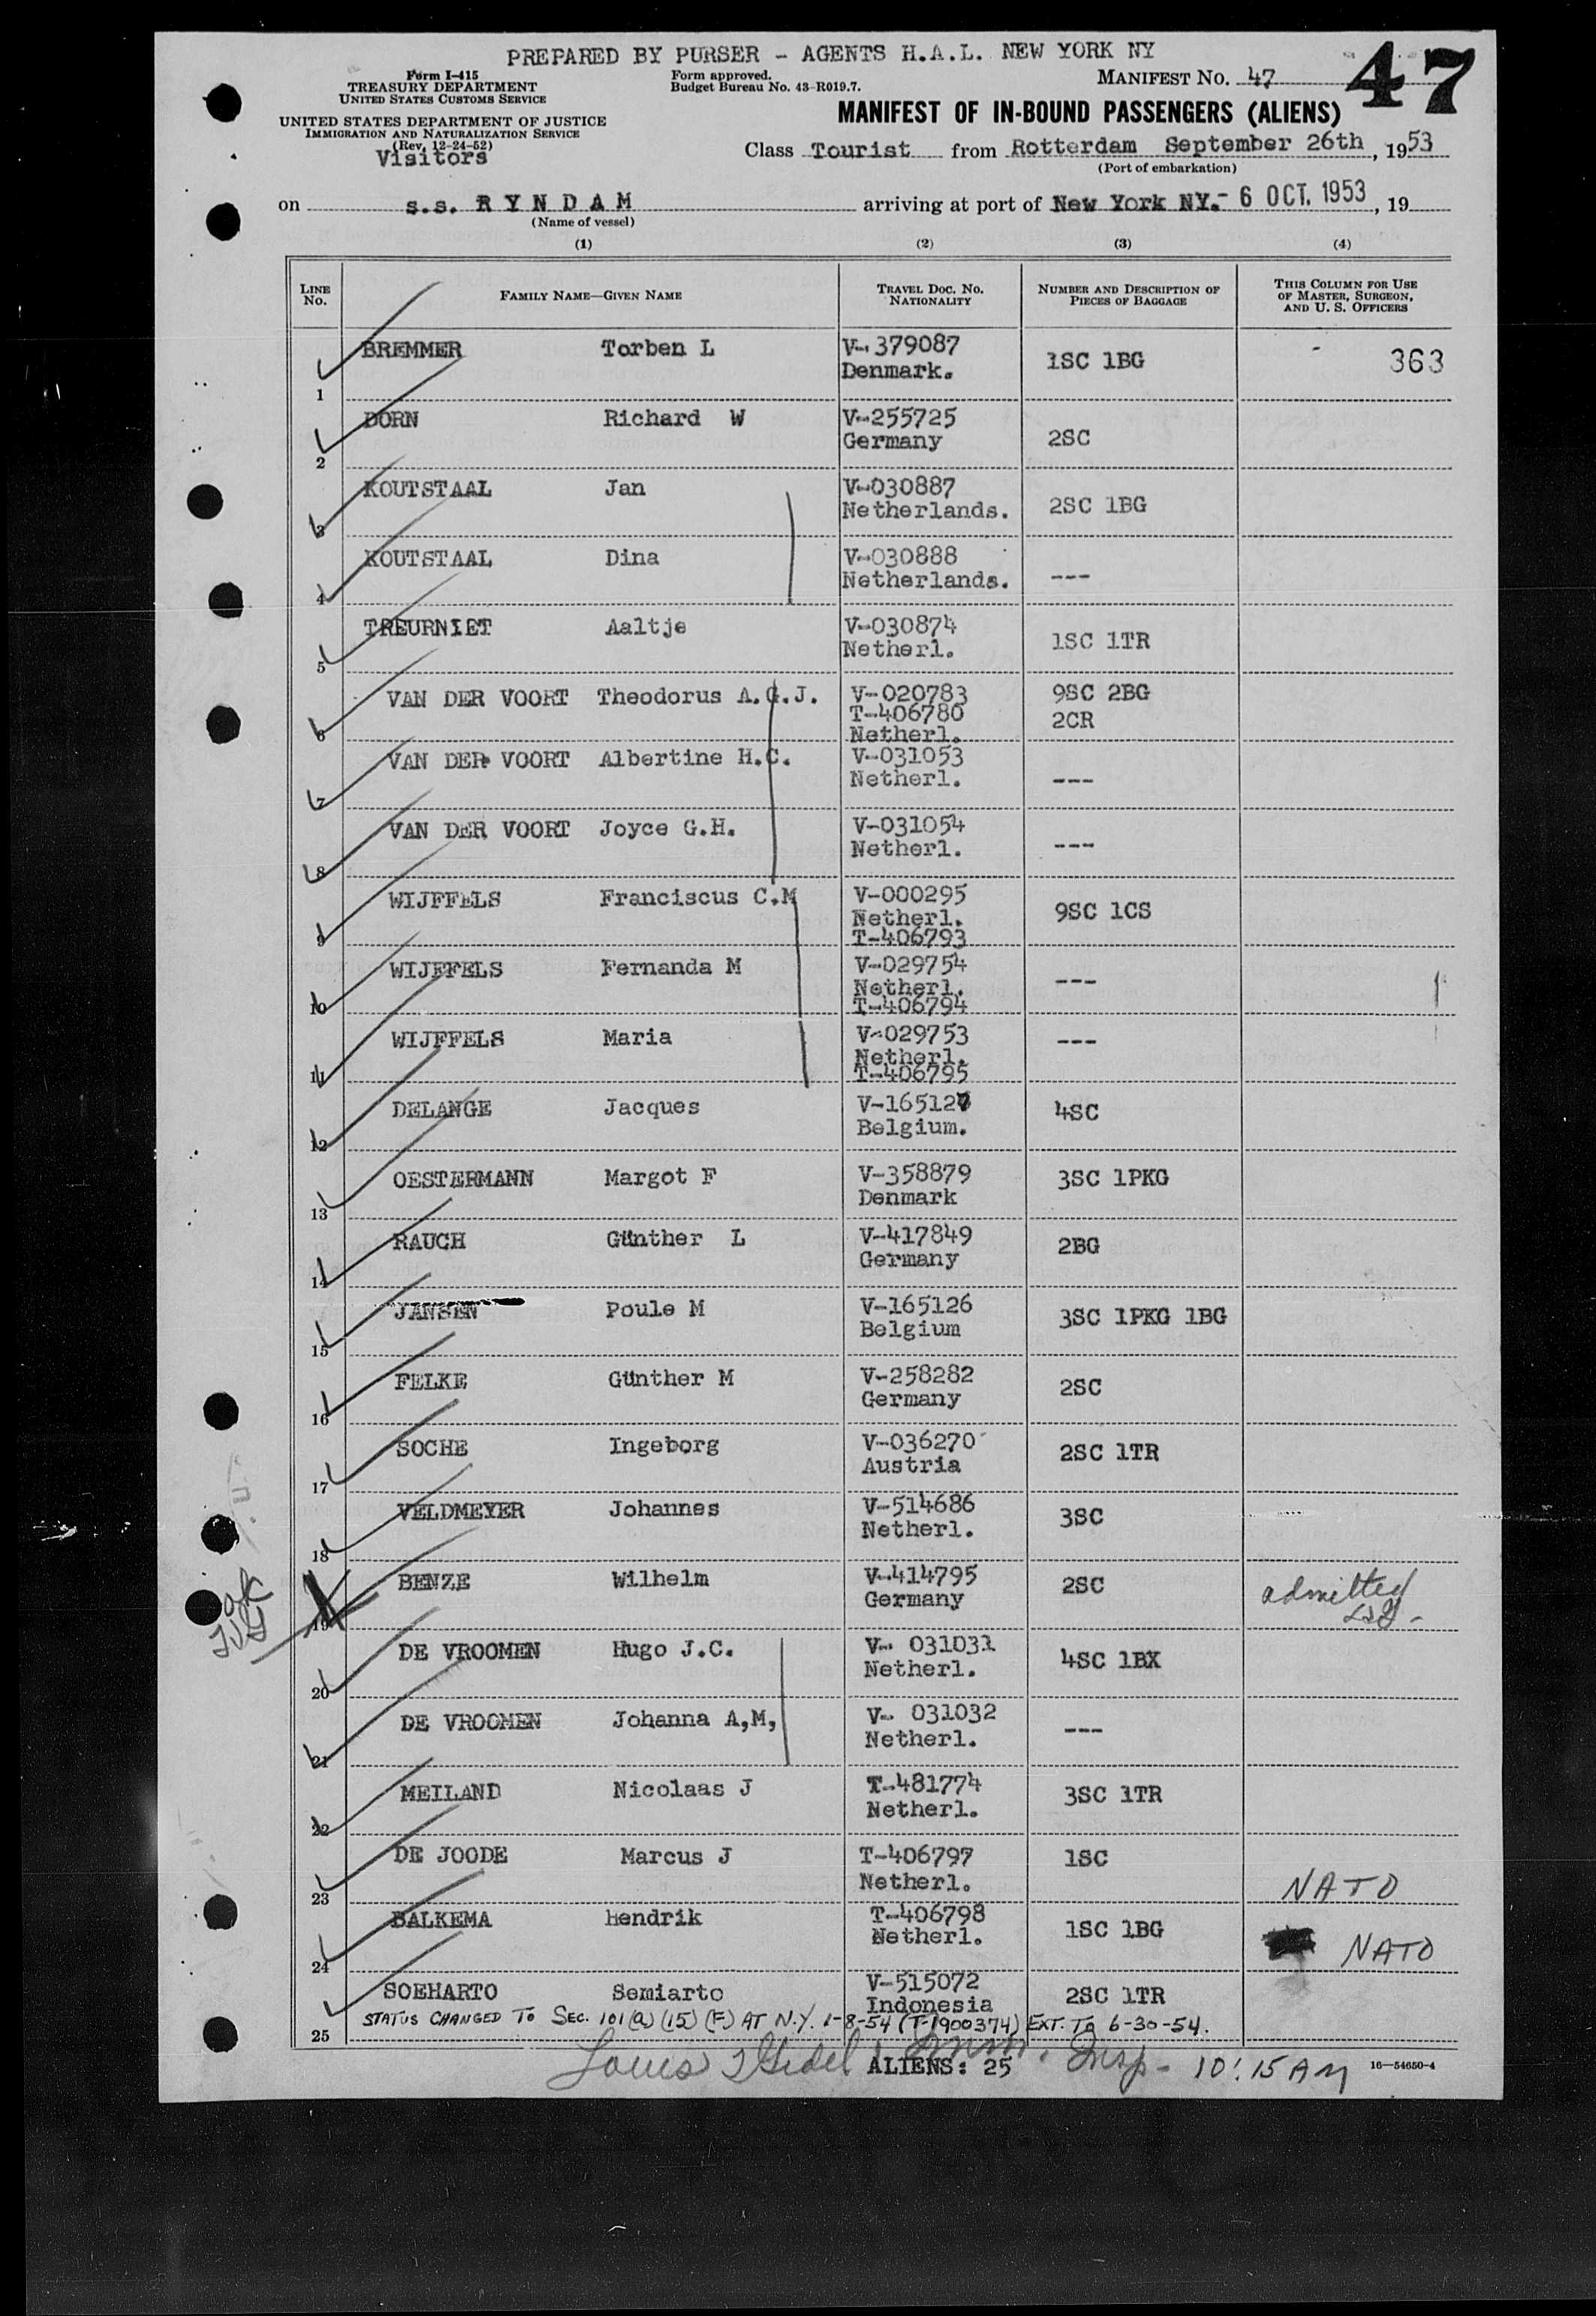 PREPARED BY PURSER - AGENTS H.A.L. NEW YORK NY
47
Form I-415
TREASURY DEPARTMENT
UNITED STATES CUSTOMS SERVICE
UNITED STATES DEPARTMENT OF JUSTICE
IMMIGRATION AND NATURALIZATION SERVICE
(Rev. 12-24-52)
Visitors
Form approved.
Budget Bureau No. 43-R019.7.
MANIFEST NO. 47
MANIFEST OF IN-BOUND PASSENGERS (ALIENS)
Class Tourist from Rotterdam September 26th, 1953
(Port of embarkation)
on s.s. RYNDAM arriving at port of New York NY. - 6 OCT. 1953, 19
(Name of vessel)
(1) (2) (3) (4)
LINE NO. FAMILY NAME—GIVEN NAME TRAVEL DOC. NO. NATIONALITY NUMBER AND DESCRIPTION OF PIECES OF BAGGAGE THIS COLUMN FOR USE OF MASTER, SURGEON, AND U. S. OFFICERS
1 BREMMER Torben L V-379087 Denmark. 1SC 1BG 363
2 DORN Richard W V-255725 Germany 2SC
3 KOUTSTAAL Jan V-030887 Netherlands. 2SC 1BG
4 KOUTSTAAL Dina V-030888 Netherlands. ---
5 TREURNIET Aaltje V-030874 Netherl. 1SC 1TR
6 VAN DER VOORT Theodorus A.G.J. V-020783 T-406780 Netherl. 9SC 2BG 2CR
7 VAN DER VOORT Albertine H.C. V-031053 Netherl. ---
8 VAN DER VOORT Joyce G.H. V-031054 Netherl. ---
9 WIJFFELS Franciscus C.M V-000295 Netherl. T-406793 9SC 1CS
10 WIJFFELS Fernanda M V-029754 Netherl. T-406794 ---
11 WIJFFELS Maria V-029753 Netherl. T-406795 ---
12 DELANGE Jacques V-165127 Belgium. 4SC
13 OESTERMANN Margot F V-358879 Denmark 3SC 1PKG
14 RAUCH Günther L V-417849 Germany 2BG
15 JANSEN Poule M V-165126 Belgium 3SC 1PKG 1BG
16 FELKE Günther M V-258282 Germany 2SC
17 SOCHE Ingeborg V-036270 Austria 2SC 1TR
18 VELDMEYER Johannes V-514686 Netherl. 3SC
19 BENZE Wilhelm V-414795 Germany 2SC admitted
20 DE VROOMEN Hugo J.C. V- 031031 Netherl. 4SC 1BX
21 DE VROOMEN Johanna A,M, V- 031032 Netherl. ---
22 MEILAND Nicolaas J T-481774 Netherl. 3SC 1TR
23 DE JOODE Marcus J T-406797 Netherl. 1SC NATO
24 BALKEMA Hendrik T-406798 Netherl. 1SC 1BG NATO
25 SOEHARTO Semiarto V-515072 Indonesia 2SC 1TR
STATUS CHANGED TO SEC. 101(a)(15)(F) AT N.Y. 1-8-54 (T-1900374) EXT. TO 6-30-54.
Louis Insp- 10:15 AM
ALIENS: 25
16—54650-4